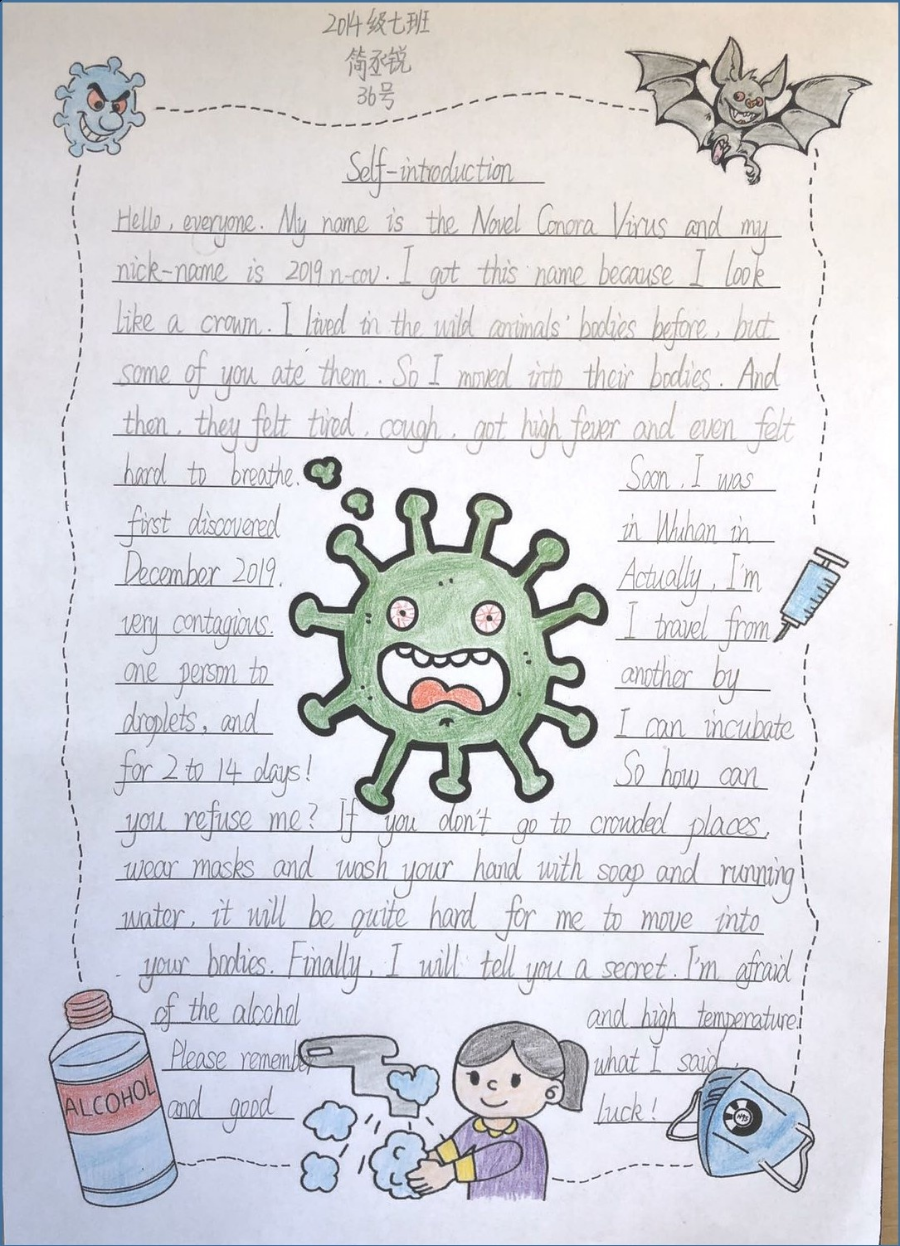 2014级七班
简丞锐
36号
Self-introduction
Hello, everyone. My name is the Novel Conora Virus and my
nick-name is 2019 n-cov. I got this name because I look
like a crown. I lived in the wild animals' bodies before, but
some of you ate them. So I moved into their bodies. And
then, they felt tired, cough, got high fever and even felt
hard to breathe. Soon, I was
first discovered in Wuhan in
December 2019. Actually, I'm
very contagious. I travel from
one person to another by
droplets, and I can incubate
for 2 to 14 days! So how can
you refuse me? If you don't go to crowded places,
wear masks and wash your hand with soap and running
water, it will be quite hard for me to move into
your bodies. Finally, I will tell you a secret. I'm afraid
of the alcohol and high temperature.
Please remember what I said
and good luck!
ALCOHOL
N95